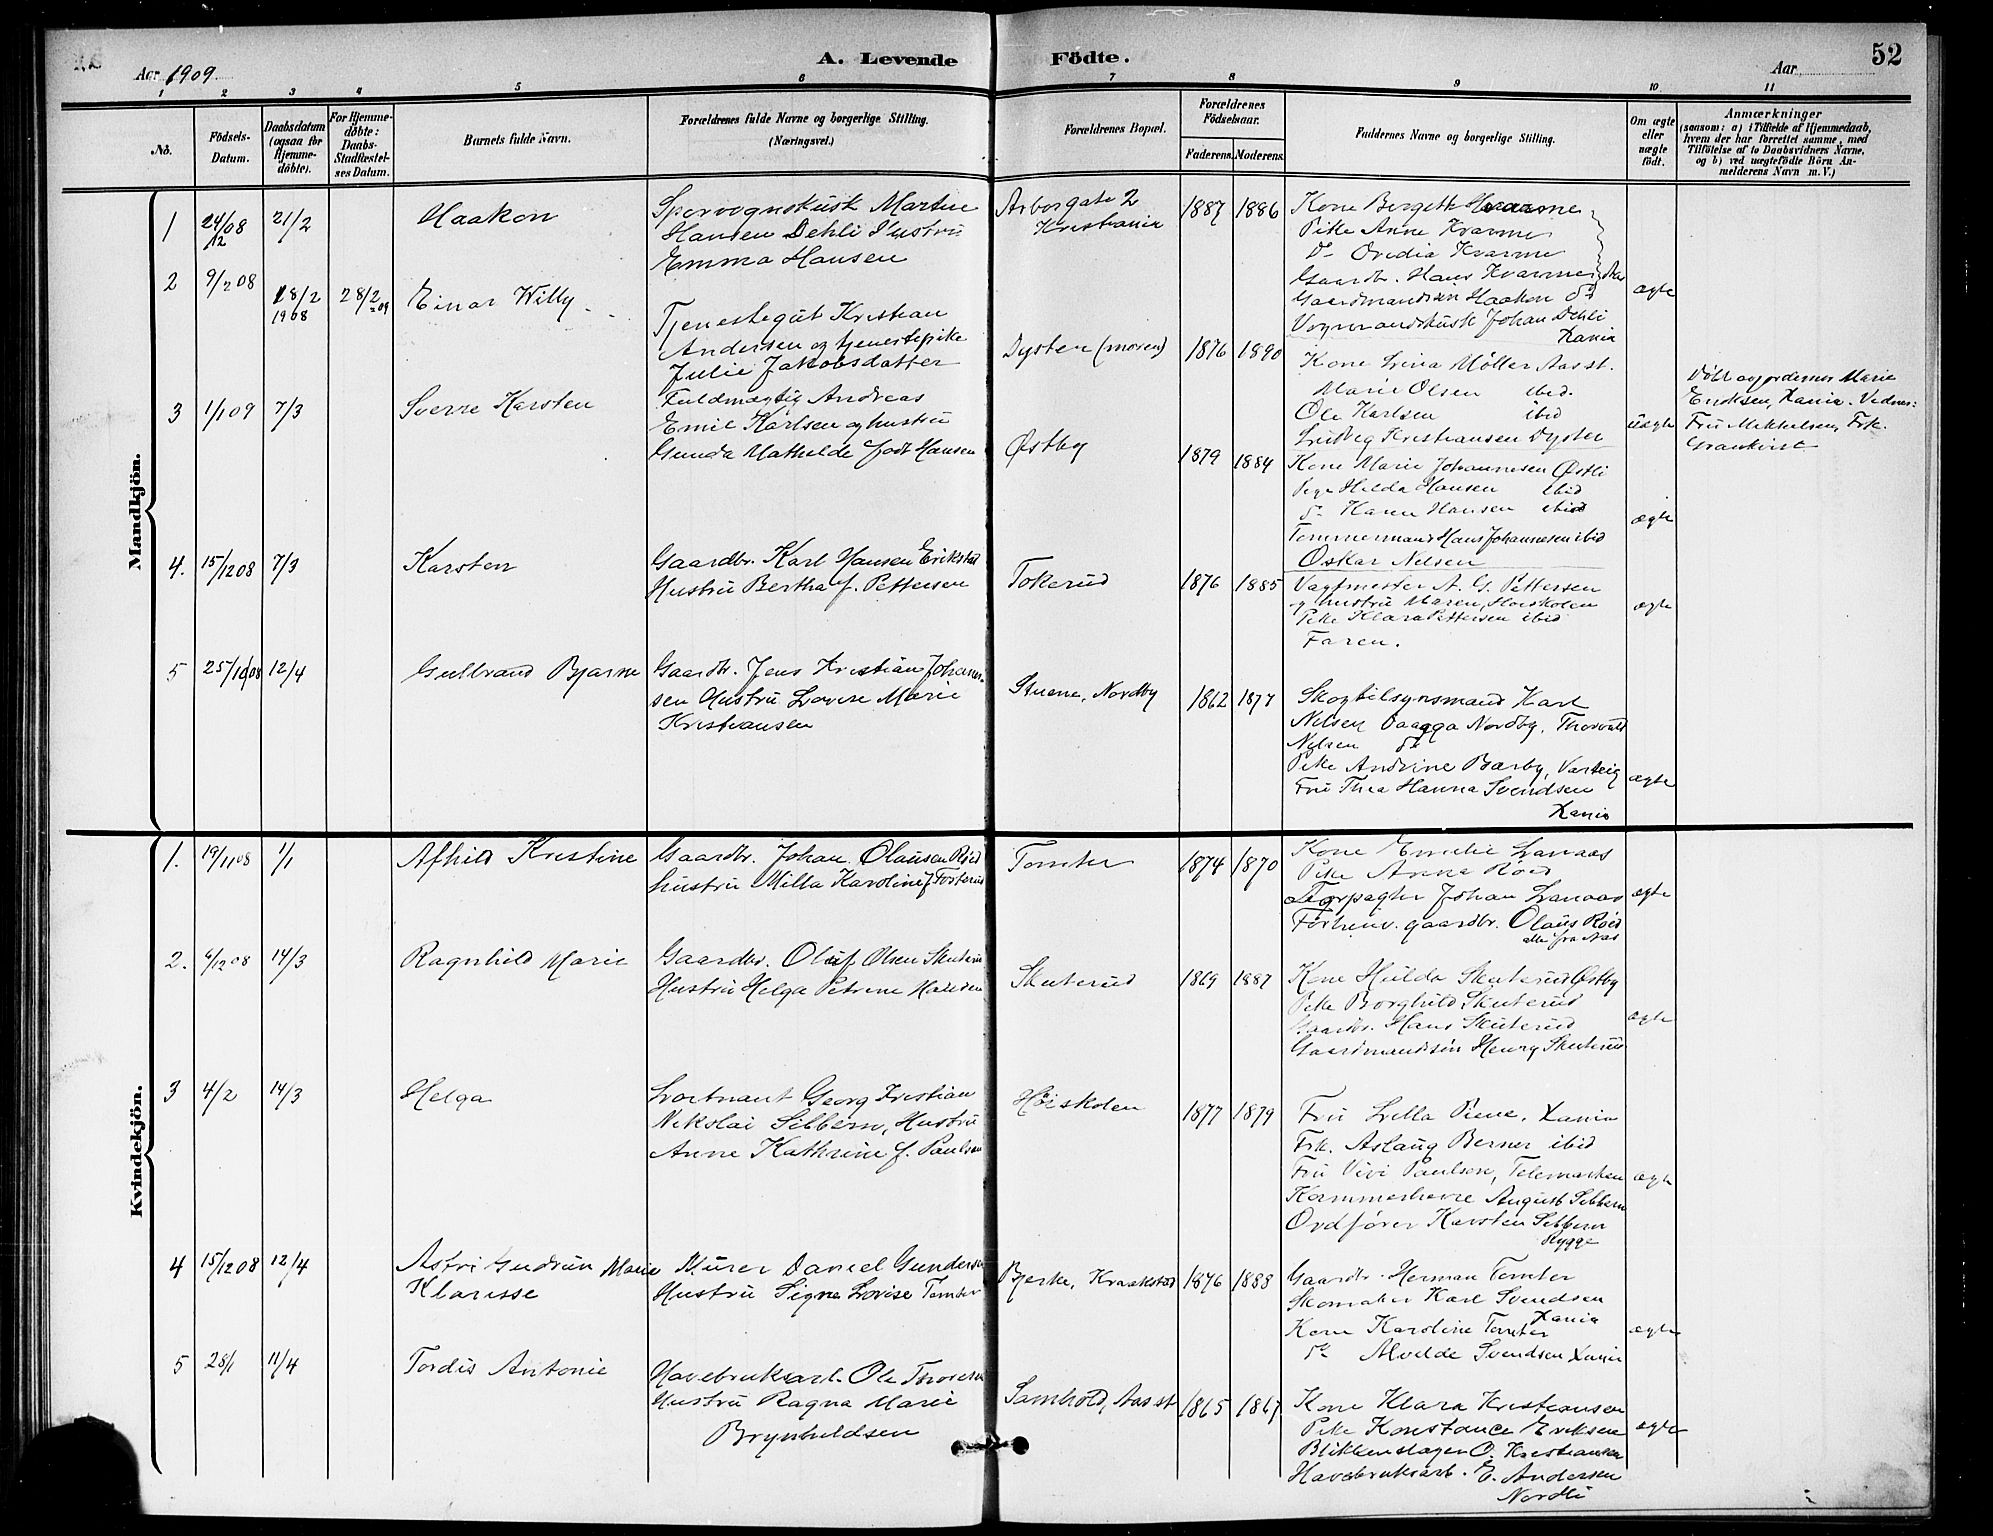 A. Levende Födte.
52
Aar 1909
Aar
1 2 3 4 5 6 7 8 9 10 11
No.
Födsels-Datum.
Daabsdatum (ogsaa for Hjemme-döbte).
For Hjemme-döbte: Daabs-Stadfæstel-ses Datum.
Barnets fulde Navn.
Forældrenes fulde Navne og borgerlige Stilling. (Næringsvei.)
Forældrenes Bopæl.
Forældrenes Födselsaar.
Faderens. Moderens.
Faddernes Navne og borgerlige Stilling.
Om ægte eller uægte födt.
Anmærkninger
(saasom: a) i Tilfælde af Hjemmedaab,
hvem der har forrettet samme, med
Tilföielse af to Daabsvidners Navne,
og b) ved uægtefödte Börn An-
melderens Navn m. V.)
Mandkjön.
1 24/12 08 21/2 Haakon
Sporvognskusk Martin
Hansen Dehli Hustru
Emma Hansen
Arborgate 2
Kristiania
1887 1886
Kone Bergette Kvarme
Pike Anne Kvarme
Do Ovidia Kvarme
Gaardbr. Hans Kvarme
Gaardmandssön Haakon do
Vognmandskusk Johan Dehli
Xania
ægte
2 9/2 08 18/2 1908 28/2 09 Einar Willy
Tjenestegut Kristian
Andersen og tjenestepike
Julie Jakobsdatter
Dyster (moren)
1876 1890
Kone Lina Møller Aas st.
Marie Olsen ibid.
Ole Karlsen ibid
Ludvig Kristiansen Dyster
uægte
Døbt av jordemor Marie
Eriksen, Xania. Vidner:
Fru Mikkelsen, Frk.
Grankvist
3 1/1 09 7/3 Sverre Karsten
Fuldmægtig Andreas
Emil Karlsen og hustru
Gunda Mathilde født Hansen
Østby
1879 1884
Kone Marie Johannesen Østli
Pige Hilda Hansen ibid
do Karen Hansen ibid
Tømmermand Hans Johannesen ibid
Oskar Nelsen
ægte
4. 15/12 08 7/3 Karsten
Gaardbr. Karl Hansen Erikstad
Hustru Bertha f. Pettersen
Tokerud
1876 1885
Vagtmester A. G. Pettersen
og hustru Maren, Høiskolen
Pike Klara Pettersen ibid
Faren.
ægte
5 25/10 08 12/4 Gulbrand Bjarne
Gaardbr. Jens Kristian Johannes-
sen Hustru Lovise Marie
Kristiansen
Stuene, Nordby
1862 1877
Skogtilsynsmand Karl
Nelsen Vaagga Nordby, Thorvald
Nelsen do
Pike Andrine Barby, Varteig
Fru Thea Hanna Svendsen
Xania
ægte
Kvindekjön.
1. 19/11 08 1/1 Afhild Kristine
Gaardbr. Johan Olausen Røed
hustru Milla Karoline f Fosterud
Tomter
1874 1870
Kone Emelie Lanaas
Pike Anna Røed
Torpagter Johan Lanaas
Forhenv. gaardbr. Olaus Røed
alle fra Aas
ægte
2. 6/12 08 14/3 Ragnhild Marie
Gaardbr. Oluf Olsen Skuterud
Hustru Helga Petrine Hansen
Skuterud
1869 1887
Kone Hulda Skuterud Østby
Pike Borghild Skuterud
Gaardbr. Hans Skuterud
Gaardmandssön Henry Skuterud
ægte
3 4/2 14/3 Helga
Løitnant Georg Kristian
Nikolai Sibbern, Hustru
Anne Kathrine f. Paulsen
Høiskolen
1877 1879
Fru Lilla Piene, Xania
Frk. Aslaug Berner ibid
Fru Vivi Paulsen, Telemarken
Kammerherre August Sibbern
Ordfører Karsten Sibbern
Rygge
ægte
4 15/12 08 12/4 Astri Gudrun Marie
Klarisse
Murer Daniel Gundersen
Hustru Signe Lovise Tomter
Bjerke, Kraakstad
1876 1888
Gaardbr. Herman Tomter
Skomaker Karl Svendsen
Xania
Kone Karoline Tomter
do Alvilde Svendsen Xania
ægte
5 28/1 11/4 Tordis Antonie
Havebruksarb. Ole Thoresen
Hustru Ragna Marie
Brynhildsen
Samhold, Aas st
1865 1867
Kone Klara Kristiansen
Pike Konstance Eriksen
Blikkenslager O. Kristiansen
Havebruksarb. E. Andersen
Nordli
ægte